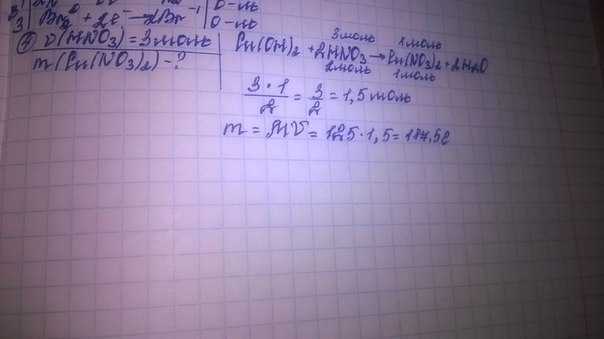 3) Br₂⁰ + 2e⁻ → 2Br⁻¹ | O-ль
O-ль
④ ν(HNO₃) = 3 моль
m(Cu(NO₃)₂) - ?
3 моль x моль
Cu(OH)₂ + 2HNO₃ → Cu(NO₃)₂ + 2H₂O
2 моль 1 моль
3 · 1 / 2 = 3 / 2 = 1,5 моль
m = Mν = 125 · 1,5 = 187,5 г